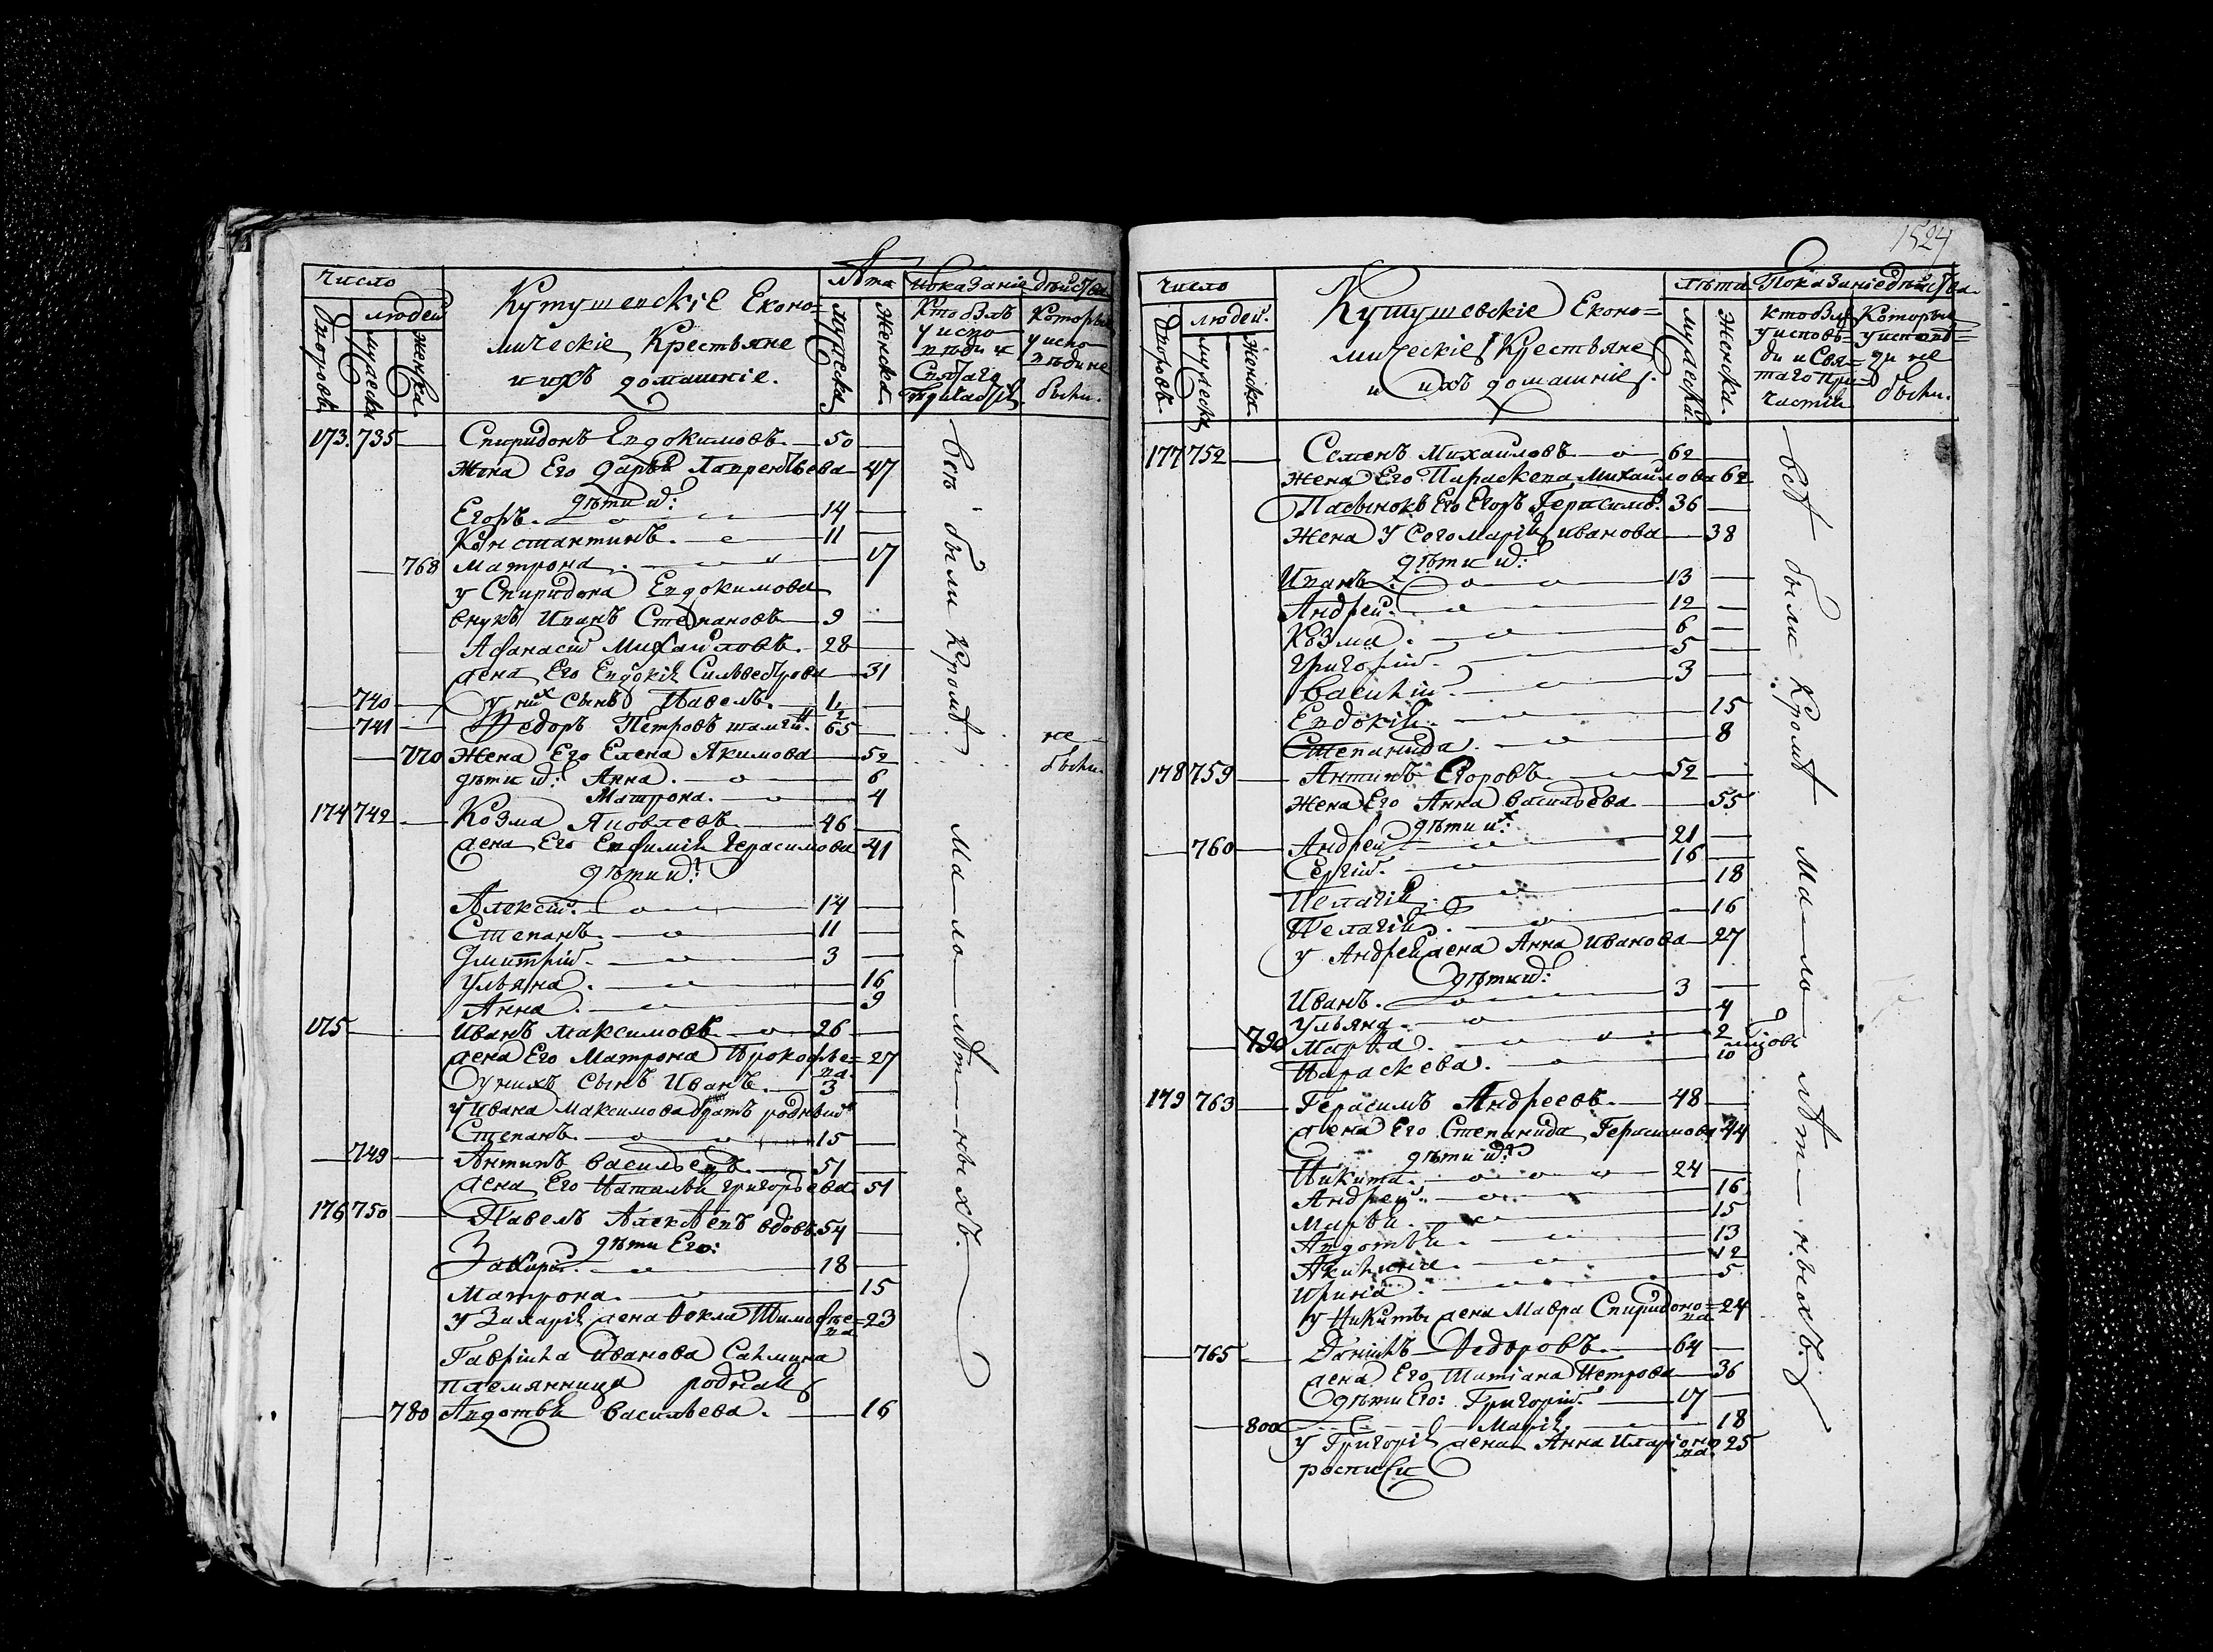 число
людей
дворовъ
мужеска
женска
Кутушевскіе Економическіе Крестьяне
и ихъ домашніе.
лѣта
мужеска
женска
показаніе действа
Кто былъ
у испо-
вѣди и
Святаго
Которые
у испо-
вѣди не
были.
173. 735 Спиридонъ Евдокимовъ. 50
жена Его Дарья Лаврентьева 47
дѣти их:
Егоръ. 14
Константинъ. 11
768 Матрона. 17
у Спиридона Евдокимова
внукъ Иванъ Степановъ 9
Афанасей Михайловъ. 28
жена Его Евдокія Сильвестрова 31
740 у них сынъ Павелъ. 1/2
741 Федоръ Петровъ 65
не
770 Жена Его Елена Якимова 52
были.
дѣти их: Анна. 6
Матрона. 4
174 742 Козма Яковлевъ 46
жена Его Евфимія Герасимова 41
дѣти их:
Алексей. 14
Степанъ. 11
Дмитрій. 3
Ульяна. 16
Анна. 9
175 Иванъ Максимовъ 26
жена Его Матрона Прокофье=ва. 27
у нихъ сынъ Иванъ. 3
у Ивана Максимова братъ родный
Степанъ. 15
749 Антипъ Васильевъ. 51
жена Его Наталья Григорьева 51
176 750 Павелъ Алексѣевъ вдовъ. 54
дѣти Его:
Захарій. 18
Матрона. 15
у Захарія жена Фекла Тимофѣе=ва 23
Гаврила Иванова
племянница родная
780 Авдотья Васильева. 16
всѣ были кромѣ малолѣтныхъ.
1524
число
людей.
дворовъ.
мужеска
женска.
Кутушевскіе Економическіе Крестьяне
и ихъ домашніе.
лѣта
мужеска
женска.
Показаніе действа.
кто был
у исповѣ=
ди и Свя=
таго при=
частія
Которые
у исповѣ=
ди не
были.
177 752 Семенъ Михайловъ 62
жена Его Параскева Михайлова 62
Пасынокъ Его Егоръ Герасимов. 36
Жена у Сего Марія Иванова 38
дѣти их:
Иванъ. 13
Андрей. 12
Козма. 6
Григорій. 5
Василій. 3
Евдокія. 15
Степанида. 8
178 759 Антипъ Егоровъ 52
жена Его Анна Васильева 55
дѣти их:
760 Андрей 21
Сергій. 16
Пелагія 18
Пелагія. 16
у Андрея жена Анна Иванова 27
дѣти их:
Иванъ. 3
Ульяна. 4
790 Марфа. 2
Параскева. 10
179 763 Герасимъ Андреевъ. 48
жена Его Степанида Герасимова 44
дѣти их:
Никита. 24
Андрей. 16
Марья. 15
Авдотья. 13
Акилина. 12
Ирина. 5
у Никиты жена Мавра Спиридоно=ва 24
765 Данилъ Федоровъ. 64
жена Его Татіана Петрова 36
дѣти Его: Григорій. 17
800 Марія. 18
у Григорія жена Анна Иларіонова 25
росписи
всѣ были кромѣ малолѣтныхъ.